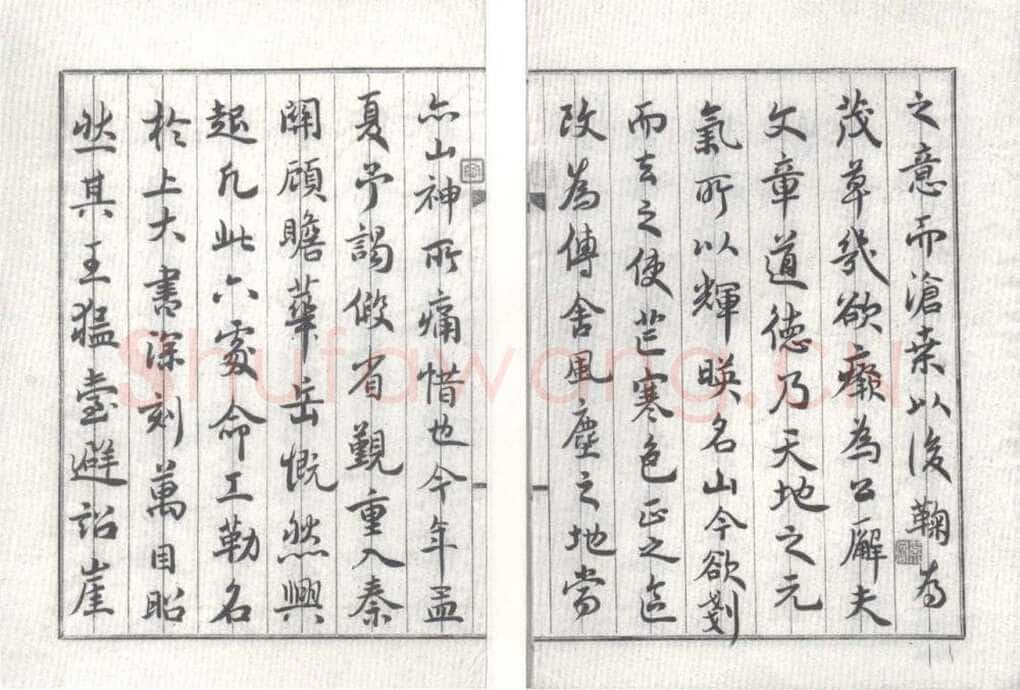 之意而滄桑以後鞠為
茂草幾欲廢為公廨夫
文章道德乃天地之元
氣所以輝暎名山今欲剗
而去之使芒寒色正之區
改為傳舍風塵之地當
亦山神所痛惜也今年孟
夏予謁假省覲重入秦
關顧瞻華岳慨然興
起凡此六處命工勒名
於上大書深刻萬目昭
然其王猛臺避詔崖
Shufawang.CN